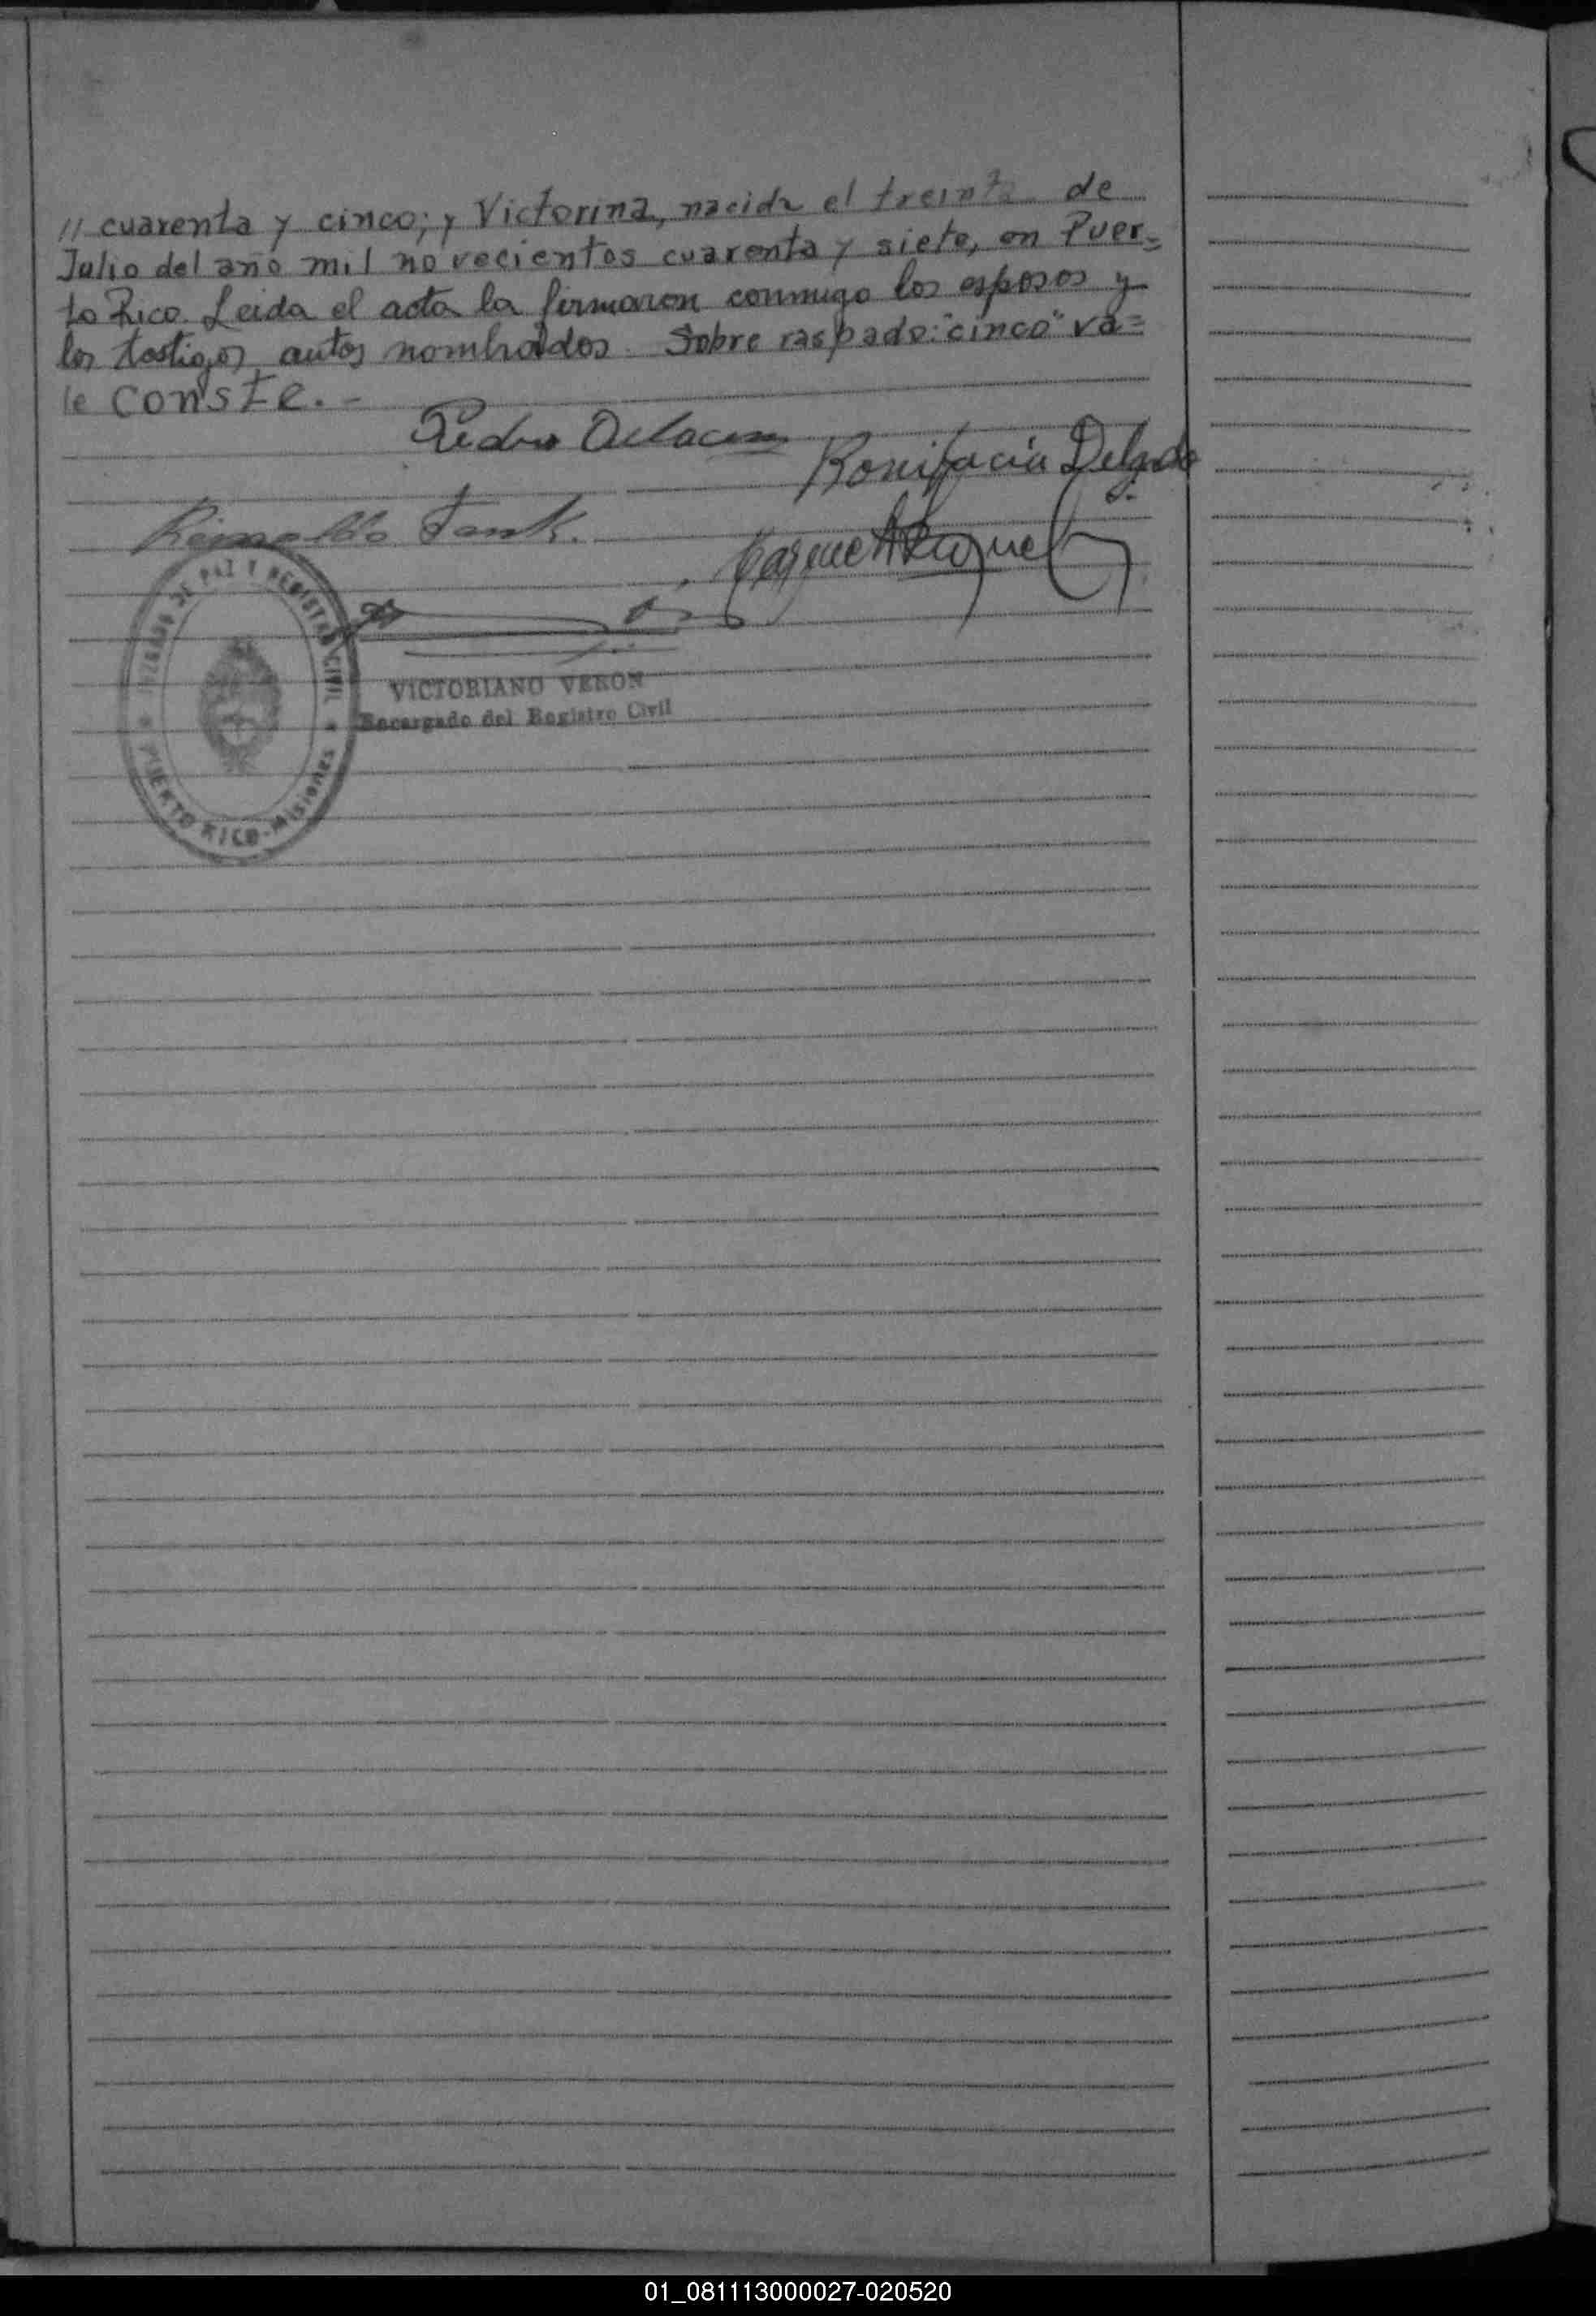 // cuarenta y cinco; y Victorina, nacida el treinta de
Julio del año mil novecientos cuarenta y siete, en Puer=
to Rico. Leida el acta la firmaron conmigo los esposos y
los testigos antes nombrados. Sobre raspado: "cinco" va=
le Conste.-
Pedro
Bonifacia Delgado
VICTORIANO VERON
Encargado del Registro Civil
JUZGADO DE PAZ Y REGISTRO CIVIL
PUERTO RICO-Misiones
01_081113000027-020520